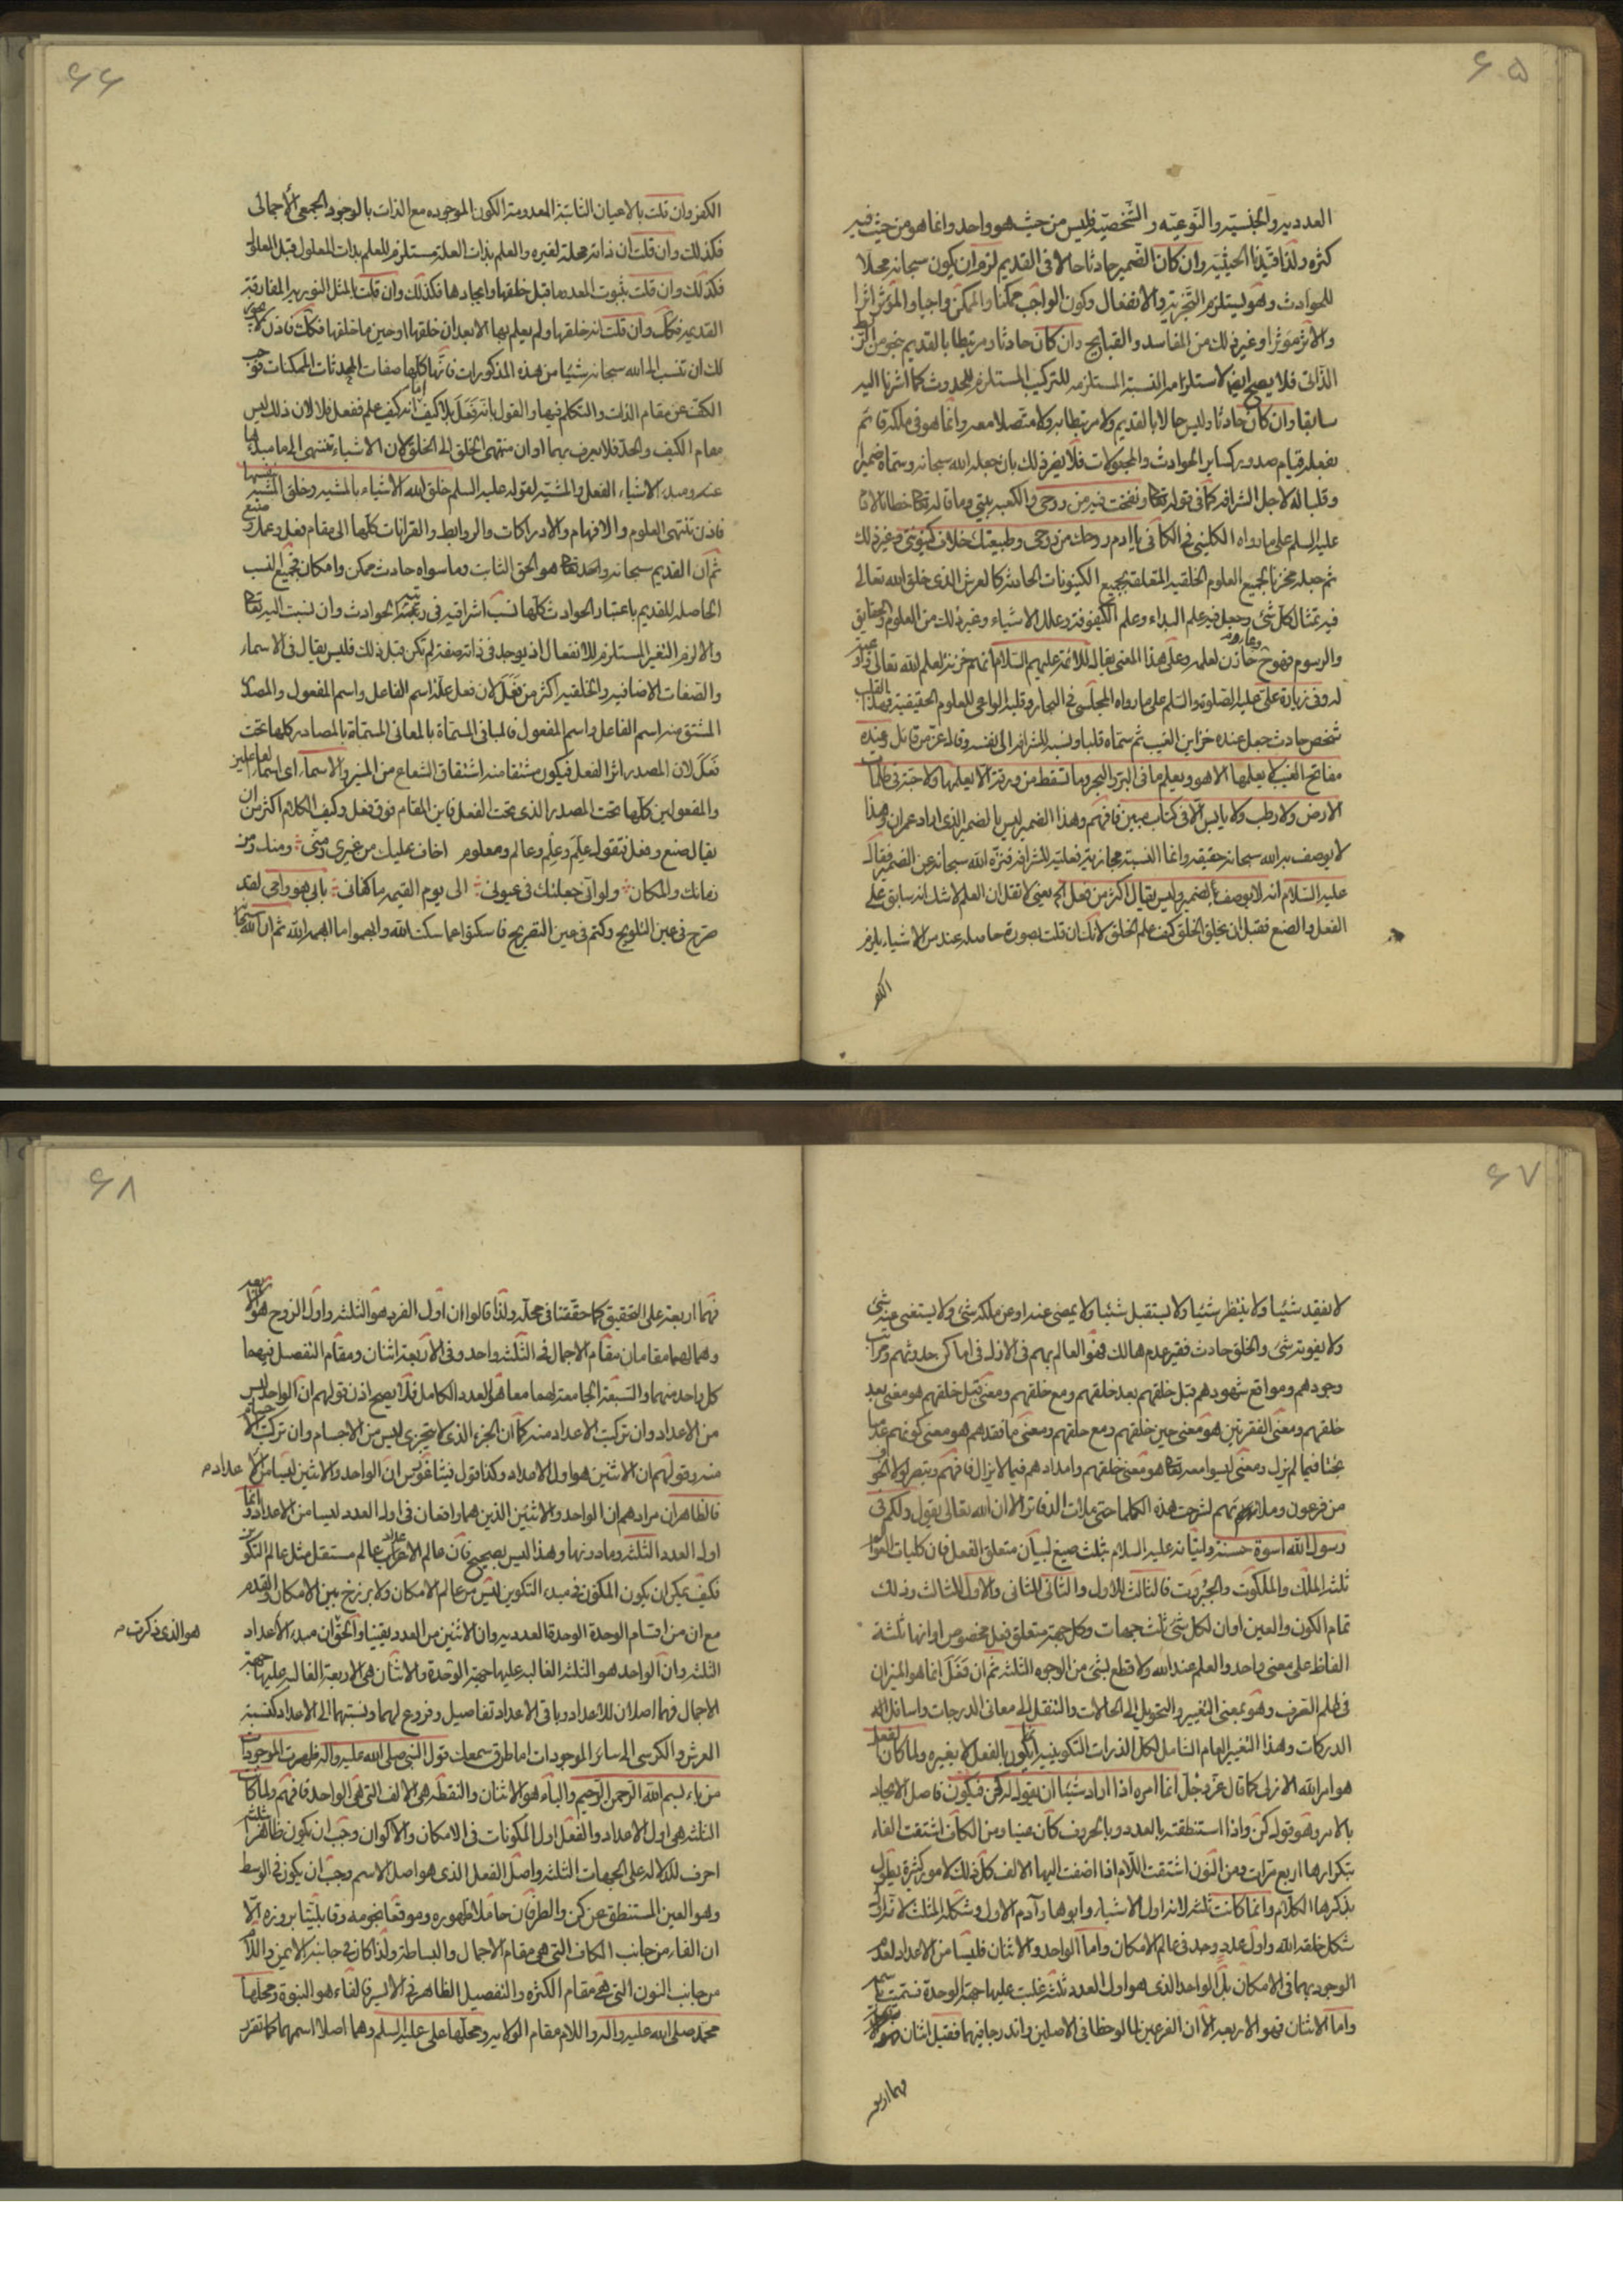 ۶۵
العدديه والجنسيه والنّوعيّه والشّخصيّة فليس من حيث هو واحد وانما هو من حيث فيه
كثرة ولذا قيّدنا الحيثيّه وان كان الضّمير حادثا حالا في القديم لزم ان يكون سبحانه محلّا
للحوادث وهو يستلزم التّجزية والانفعال وكون الواجب ممكنا والممكن واجبا والمؤثر اثرا
والاثر مؤثرا وغير ذلك من المفاسد والقبايح وان كان حادثا ومرتبطا بالقديم بنحو من الربط
الذاتي فلا يصح ايضا لاستلزامه النسبة المستلزمه للتركيب المستلزم للحدوث كما اشرنا اليه
سابقا وان كان حادثا وليس حالا بالقديم ولا مرتبطا به ولا متصلا معه وانما هو في ملكه قائم
بفعله قيام صدور كساير الحوادث والمجعولات فلا يضر ذلك بان جعله الله سبحانه وسمّاه ضميرا
وقلبا له لاجل الشرافه كما في قوله تعالى ونفخت فيه من روحي والكعبه بيتي وما قاله تعالى خطابا لادم
عليه السلم على ما رواه الكليني في الكافي يا ادم روحك من روحي وطبيعتك خلاف كينونتي وغير ذلك
ثم جعله مخزنا لجميع العلوم الخلقيه المتعلقة بجميع الكينونات الحادثه كالعرش الذي خلق الله تعالى
فيه تمثال كل شئ وجعل فيه علم البداء وعلم الكيفوفة وعلل الاشياء وغير ذلك من العلوم والحقايق
والرسوم فهو ح خازن لعلمه وعلى هذا المعنى يقال للائمة عليهم السّلام انهم خزنة لعلم الله تعالى
وفي زيارة علي عليه الصلوة والسلم على ما رواه المجلسي في البحار وقلبه الواعي للعلوم الحقيقية فهذا القلب
شخص حادث جعل عنده خزاين الغيب ثم سمّاه قلبا ونسبه للشرافه الى نفسه وقال عز من قائل وعنده
مفاتح الغيب لا يعلمها الا هو ويعلم ما في البر والبحر وما تسقط من ورقة الا يعلمها ولا حبة في ظلمات
الارض ولا رطب ولا يابس الا في كتاب مبين فافهم وهذا الضمير ليس بالضمير الذي اراد عمران وهذا
لا يوصف به الله سبحانه حقيقه وانما النسبة مجازية فعلية للشرافه فنزّه الله سبحانه عن الضمير فقال
عليه السّلام انه لا يوصف بالضمير وليس يقال اكثر من فعل الخ يعني لا تقل ان العلم لا شك انه سابق على
الفعل والصنع فقبل ان يخلق الخلق كيف علم الخلق لانك ان قلت بصورة حاصله عنده من الاشياء يلزم
الكفر
۶۶
الكفر وان قلت بالاعيان الثابتة المعدومة الكون الموجوده مع الذات بالوجود الجمعي الاجمالي
فكذلك وان قلت ان ذاته علة لغيره والعلم بذات العلة مستلزم للعلم بذات المعلول قبل المعلول
فكذلك وان قلت بثبوت المعدوما قبل خلقها وايجادها فكذلك وان قلت بالمثل النوريه المفارقة
القديمه فكك وان قلت انه خلقها ولم يعلم بها الا بعد ان خلقها او حين ما خلقها فكك فاذن لا يجوز
لك ان تنسب الى الله سبحانه شيئا من هذه المذكورات فانها كلّها صفات المحدثات الممكنات فوجب
الكف عن مقام الذات والتكلم فيها والقول بانه فعل بلا كيف اما انه كيف علم ففعل فلا لان ذلك ليس
مقام الكيف والحد فلا يعرف بهما اوان منتهى الخلق الى الخلق لان الاشياء تنتهي الى ما مبدأها
عنه ومبدء الاشياء الفعل والمشيه لقوله عليه السلم خلق الله الاشياء بالمشيه وخلق المشيه بنفسها
فاذن تنتهي العلوم والافهام والادراكات والروابط والقرانات كلّها الى مقام فعل وعمل وصنع
ثم ان القديم سبحانه واحد تعالى هو الحق الثابت وما سواه حادث ممكن وامكان فجميع النسب
الحاصله للقديم باعتبار الحوادث كلّها نسب اشراقيه في رتبة الحوادث وان نسبت اليه تعالى
والا لزم التغير المستلزم للانفعال اذ يوجد في ذاته صفة لم تكن قبل ذلك فليس يقال في الاسماء
والصفات الاضافيه والخلقيه اكثر من فَعَلَ لان فعل علة اسم الفاعل واسم المفعول والمصدر
المشتق منه اسم الفاعل واسم المفعول فالمباني المسمّاة بالمعاني المسمّاة بالمصادر كلها تحت
فَعَلَ لان المصدر اثر الفعل فيكون مشتقا منه اشتقاق الشعاع من المنير والاسماء اي اسماء الفاعلين
والمفعولين كلّها تحت المصدر الذي تحت الفعل فاين المقام فوق فعل وكيف الكلام اكثر من ان
يقال صنع وفعل فتقول عَلِمَ وعِلم وعالم ومعلوم اخاف عليك من غيري ومنّي ومنك ومن
زمانك والمكان ولو اني جعلتك في عيوني الى يوم القيمه ما كفاني بابي هو وامي لقد
صرّح في عين التلويح وكتم في عين التصريح فاسكتوا عما سكت الله وابهموا ما ابهمه الله ثم ان الله سبحانه
۶۷
لا يفقد شيئا ولا ينتظر شيئا ولا يستقبل شيئا ولا يمضي عنه او عن ملكه شئ ولا يستغني عنه شئ
ولا يفوته شئ والخلق حادث فقير عدم هالك فهو العالم بهم في الازل في اماكن حدوثهم ومراتب
وجودهم ومواقع شهودهم قبل خلقهم بعد خلقهم ومع خلقهم ومعنى قبل خلقهم هو معنى بعد
خلقهم ومعنى الفقرتين هو معنى حين خلقهم ومع خلقهم ومعنى ما فقدهم هو معنى كونهم عدما
بحتا فيما لم يزل ومعنى ليسوا معه تعالى هو معنى خلقهم وامدادهم فيما لا يزال فافهم وتبصر لولا الخوف
من فرعون وملائهم لشرحت هذه الكلما حتى ملات الدفاتر الا ان الله تعالى يقول ولكم في
رسول الله اسوة حسنة ولبيانه عليه السلام بثلث صيغ لبيان متعلق الفعل فان كليات العوالم
ثلثه الملك والملكوت والجبروت فالثالث للاول والثاني للثاني والاول للثالث وذلك
تمام الكون والعين اوان لكل شئ ثلث جهات وكل جهة متعلق فعل مخصوص اوانها ثلثة
الفاظ على معنى واحد والعلم عند الله ولا قطع بشئ من الوجوه الثلثه ثم ان فَعَلَ انما هو الميزان
في علم التصرف وهو بمعنى التغيير والتحويل الى الحالات والتنقل الى معاني الدرجات واسافل
الدركات وهذا التغيير العام الشامل لكل الذرات التكوينيه انما يكون بالفعل لا بغيره ولما كان الفعل
هو امر الله الازلي كما قال عزّ وجلّ انما امره اذا اراد شيئا ان يقول له كن فيكون فاصل الايجاد
بالامر وهو قوله كن واذا استنطقته بالعدد وبالحروف كان عينا ومن الكاف اشتقت الفاء
بتكرارها اربع مرات ومن النون اشتقت اللّام اذا اضفت اليها الالف كل ذلك لامور كثيرة يطول
بذكرها الكلام وانما كانت ثلثه لانه اول الاشياء وابوها وآدم الاول وشكله المثلث لانه اول
شكل خلقه الله واول عدد وجد في عالم الامكان واما الواحد والاثنان فليسا من الاعداد لعدم
الوجود بهما في الامكان بل الواحد الذي هو اول العدد ثلثه غلبت عليها جهة الوحدة فتمت باسمه
واما الاثنان فهو الاربعه الا ان الفرعين لما لوحظا في الاصلين واندرجا فيهما فقيل اثنان
فهما اربعه
۶۸
فهما اربعة على التحقيق كما حققنا في محله ولذا قالوا ان اول الفرد هو الثلثه واول الزوج هو الاربعه
وهما لهما مقامان مقام الاجمال في الثلثه واحد وفي الاربعة اثنان ومقام التفصيل فيهما
كل واحد منهما والسبعة الجامعة لهما معا هو العدد الكامل فلا يصح اذن قولهم ان الواحد ليس
من الاعداد وان تركبت الاعداد منه كما ان الجزء الذي لا يتجزى ليس من الاجسام وان تركبت الاجسام
منه وقولهم ان الاثنين هو اول الاعداد وكذا قول فيثاغورس ان الواحد والاثنين ليسا من الاعداد
فالظاهر ان مرادهم ان الواحد والاثنين الذين هما واقعان في اول العدد ليسا من الاعداد وانما
اول العدد الثلثه وما دونها وهذا ليس بصحيح فان عالم الاعداد عالم مستقل مثل عالم التكوين
فكيف يمكن ان يكون المكون في مبدء التكوين ليس من عالم الامكان ولا برزخ بين الامكان والقدم
مع ان من اقسام الوحدة الوحدة العدديه وان الاثنين من العدد يقينا والحق ان مبدء الاعداد
هو الذي ذكرت
الثلثه وان الواحد هو الثلثه الغالبه عليها جهة الوحدة والاثنان هي الاربعة الغالبه عليها جهة
الاجمال فهما اصلان للاعداد وباقي الاعداد تفاصيل وفروع لهما ونسبتهما الى الاعداد كنسبة
العرش والكرسي الى سائر الموجودات اما طرق سمعك قول النبي صلى الله عليه واله ظهرت الموجودات
من باء بسم الله الرحمن الرحيم والباء هو الاثنان والنقطة هي الالف التي هي الواحد فافهم ولما كانت
الثلثه هي اول الاعداد والفعل اول المكونات في الامكان والاكوان وجب ان يكون ظاهرا ثلثة
احرف للدلالة على الجهات الثلثه واصل الفعل الذي هو اصل الاسم وجب ان يكون في الوسط
وهو العين المستنطق عن كن والطرفان حاملا ظهوره وموقعا نجومه وقابليتا بروزه الا
ان الفاء من جانب الكاف التي هي مقام الاجمال والبساطة ولذا كان في جانبه الايمن واللام
من جانب النون التي هي مقام الكثرة والتفصيل الظاهر في الايسر فالفاء هو النبوة ومحلها
محمد صلى الله عليه واله واللام مقام الولايه ومحلها علي عليه السلم وهما اصلا اسمهما كما تقرر